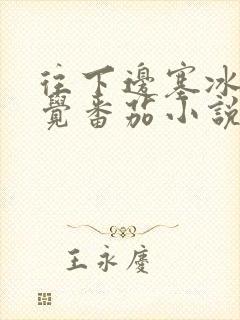 往下邊塞冰
覺番茄小說
王永慶